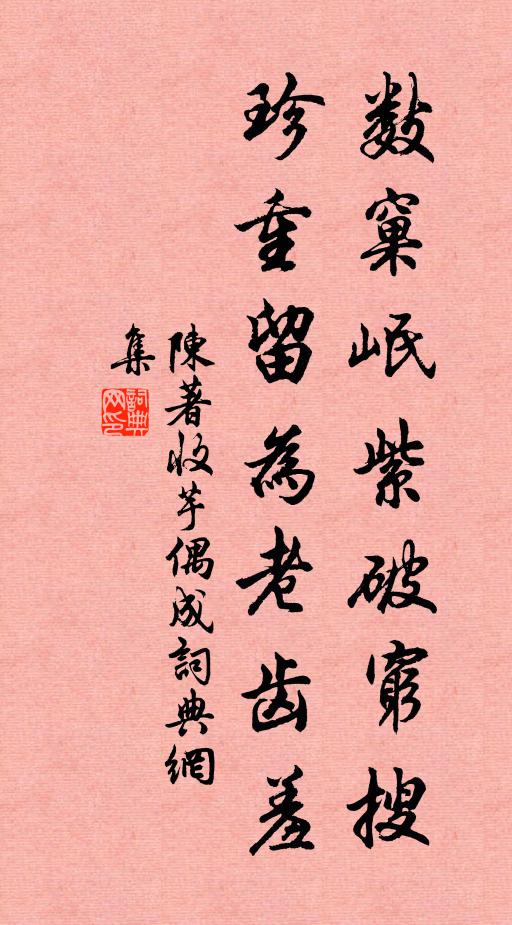 數窠岷紫破窮搜
珍重留為老齒羞
陳著收芋偶成詞典網
集
詞典網印